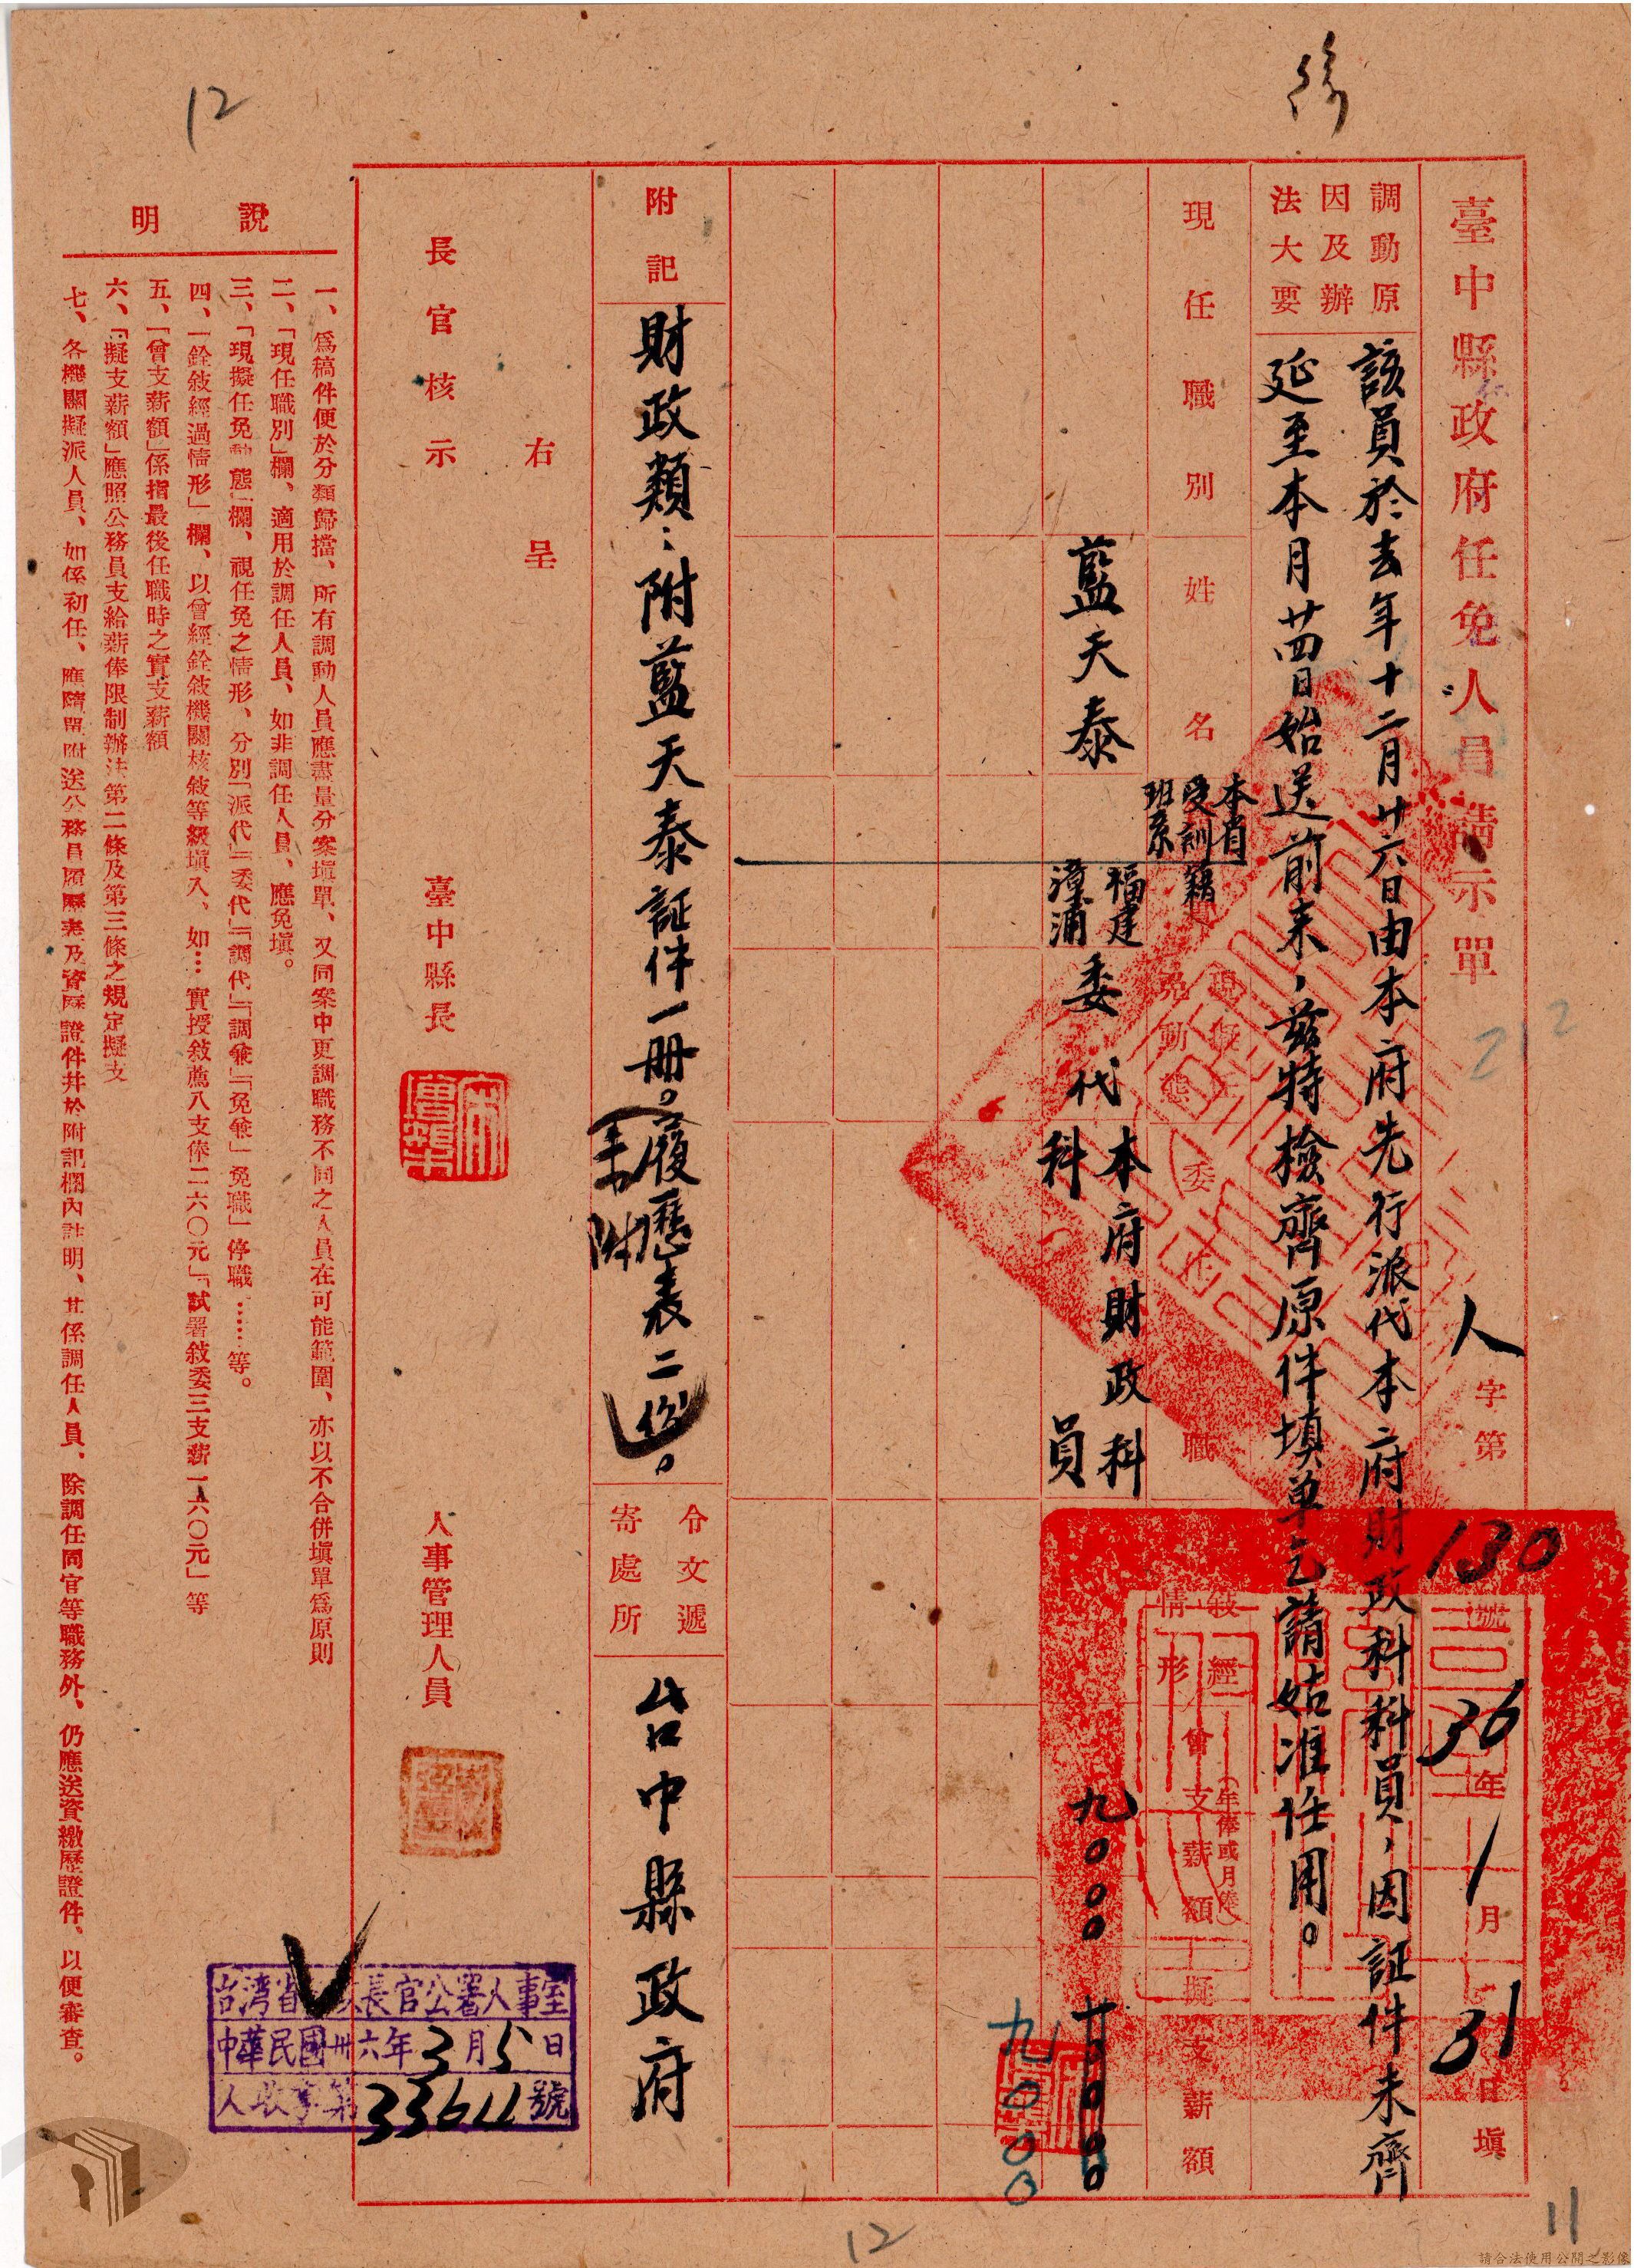 臺中縣政府任免人員請示單
人字第130號
36年1月31日填
調動原因及辦法大要
該員於去年十二月廿六日由本府先行派代本府財政科科員，因証件未齊
延至本月廿四日始送前來，茲特檢齊原件填单乞請姑准任用。
現任職別
姓名
本省受訓班系
籍貫
現擬任免動態
職
敍經情形
曾支薪額（年俸或月俸）
擬支薪額
藍天泰
福建漳浦
委代
本府財政科科員
九〇.〇〇
九〇.〇〇
附記
財政類：附藍天泰証件一冊。履歷表二份。
未附
令文遞寄處所
台中縣政府
右呈
長官核示
臺中縣長
人事管理人員
說明
一、爲稿件便於分類歸擋、所有調動人員應盡量分案塡單、又同案中更調職務不同之人員在可能範圍、亦以不合併塡單爲原則
二、「現任職別」欄、適用於調任人員、如非調任人員、應免塡。
三、「現擬任免動態」欄、視任免之情形、分別「派代」「委代」「調代」「調兼」「免兼」免職」停職……等。
四、「銓敍經過情形」欄、以曾經銓敍機關核敍等級塡入、如…實授敍薦八支俸二六〇元」「試署敍委三支薪一六〇元」等
五、「曾支薪額」係指最後任職時之實支薪額
六、「擬支薪額」應照公務員支給薪俸限制辦法第二條及第三條之規定擬支
七、各機關擬派人員、如係初任、應隨單附送公務員履歷表及資歷證件幷於附記欄內註明、其係調任人員、除調任同官等職務外、仍應送資繳歷證件、以便審查。
台灣省 長官公署人事室
中華民國卅六年3月5日
人收事第33611號
12
212
12
11
請合法使用公開之影像